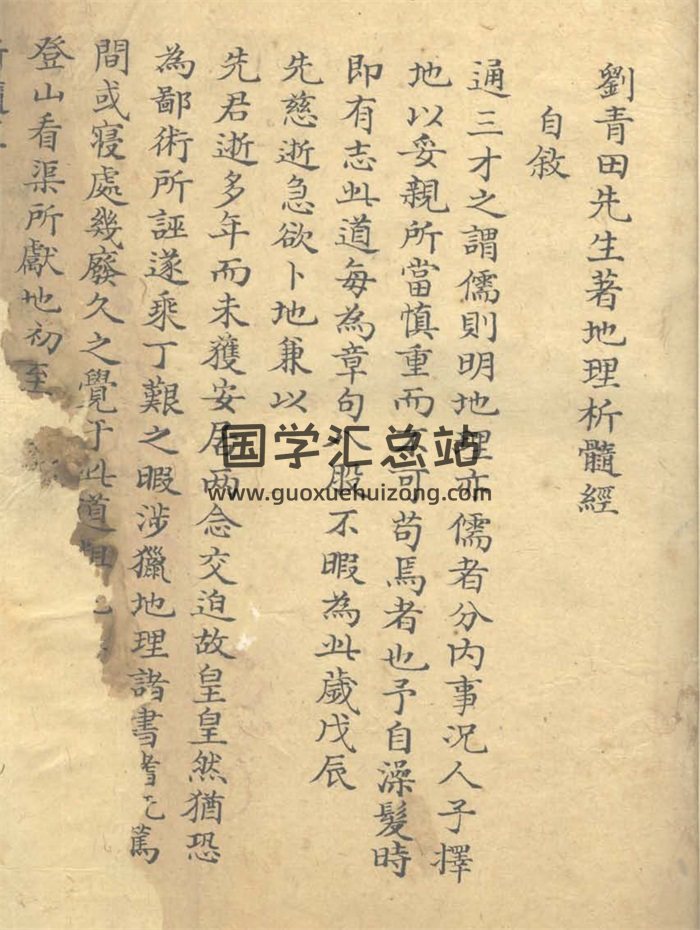 劉青田先生著地理析髓經
自敘
通三才之謂儒則明地理亦儒者分内事況人子擇
地以妥親所當慎重而可苟焉者也予自澡髮時
即有志此道每為章句八股不暇為此歲戊辰
先慈逝急欲卜地兼以
先君逝多年而未獲安居兩念交迫故皇皇然猶恐
為鄙術所誣遂乘丁艱之暇涉獵地理諸書篤
間或寢處幾廢久之覺于此道
登山看渠所獻地初至
国学汇总站
www.guoxuehuizong.com